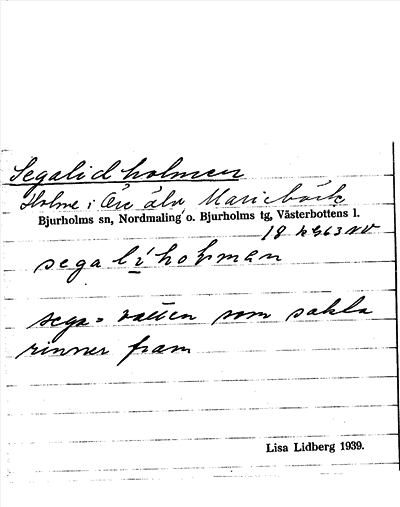 Segalidholmen
Holme i Öre älv, Mariebäck
Bjurholms sn, Nordmaling o. Bjurholms tg, Västerbottens l.
19 NV
segalihoḷman
sega = vatten som sakta
rinner fram
Lisa Lidberg 1939.